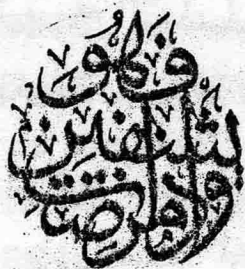 وإذا مرضت
فهو
يشفين